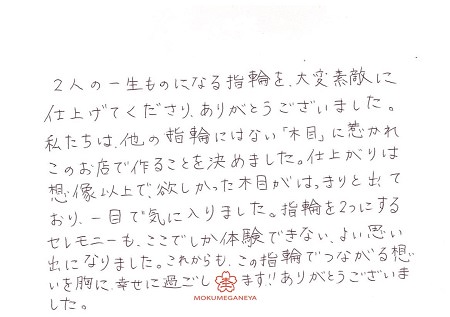 2人の一生ものになる指輪を、大変素敵に
仕上げてくださり、ありがとうございました。
私たちは、他の指輪にはない「木目」に惹かれ
このお店で作ることを決めました。仕上がりは
想像以上で、欲しかった木目がはっきりと出て
おり、一目で気に入りました。指輪を2つにする
セレモニーも、ここでしか体験できない、よい思い
出になりました。これからも、この指輪でつながる想
いを胸に、幸せに過ごします!!ありがとうございま
した。
MOKUMEGANEYA